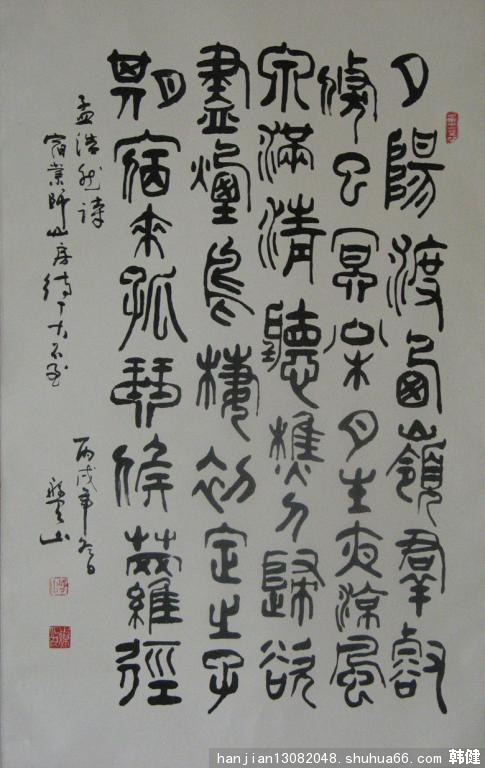 夕陽渡西嶺羣壑
倏已冥松月生夜涼風
泉滿清聽樵人歸欲
盡煙鳥棲初定之子
期宿來孤琴候蘿徑
孟浩然詩
宿業師山房待丁大不至
丙戌年冬日 山
hanjian13082048.shuhua66.com 韩健